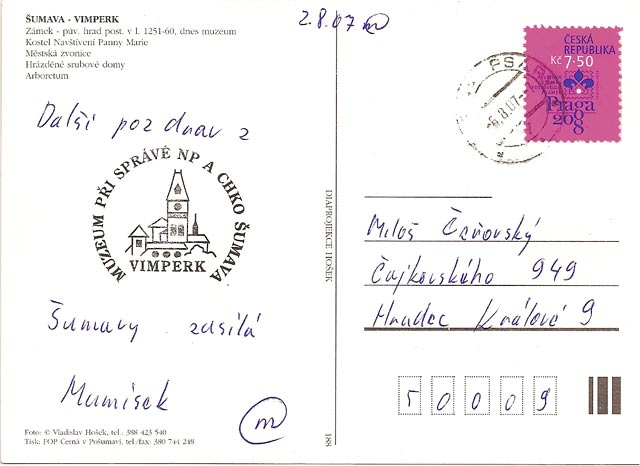 ŠUMAVA - VIMPERK
Zámek - pův. hrad post. v l. 1251-60, dnes muzeum
Kostel Navštívení Panny Marie
Městská zvonice
Hrázděné srubové domy
Arboretum
2.8.07
ČESKÁ
REPUBLIKA
Kč 7·50
Praga
2008
6.8.07
Další pozdrav z
MUZEUM PŘI SPRÁVĚ NP A CHKO ŠUMAVA
VIMPERK
Šumavy zasílá
Mumísek
m
Foto: © Vladislav Hošek, tel.: 388 423 540
Tisk: FOP Černá v Pošumaví, tel./fax: 380 744 248
DIAPROJEKCE HOŠEK
188
Miloš
Čajkovského 949
Hradec Králové 9
5 0 0 0 9